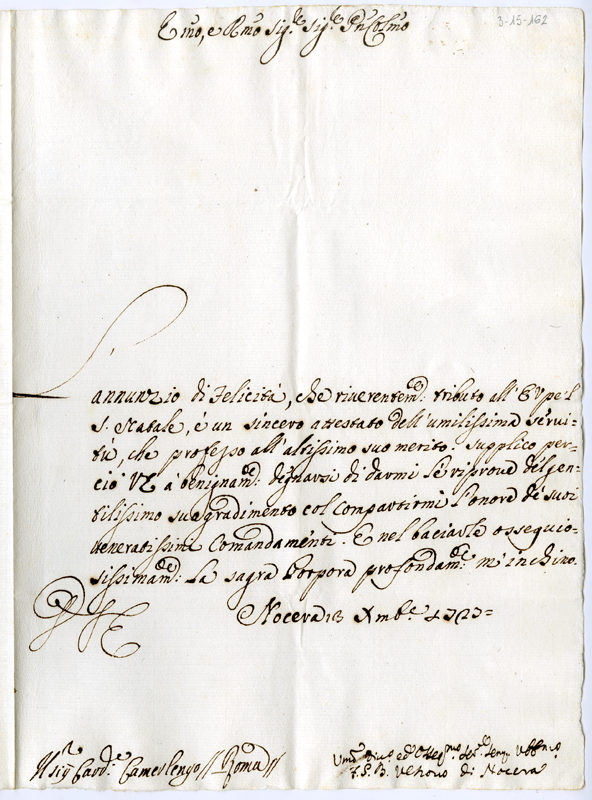 3-15-162
Emo, e Rmo Sig.re Sig.re Pne Colmo
L'
annunzio di Felicità, che riverentem.te tributo all'EV pe'l
S. Natale, è un sincero attestato dell'umilissima servi-
tù, che professo all'altissimo suo merito. Supplico per-
ciò VE à benignam.te degnarsi di darmi le riprove del gen-
tilissimo suo gradimento col compartirmi l'onore de' suoi
veneratissimi Comandamenti. E nel baciarle ossequio-
sissimam.te la sagra Porpora profondam.te m'inchino.
Nocera 13 Xmb.e 1723=
Sig.r Card.le Camerlengo // Roma //
Um.o ed Osseq.mo
F. S. B. Vescovo di Nocera